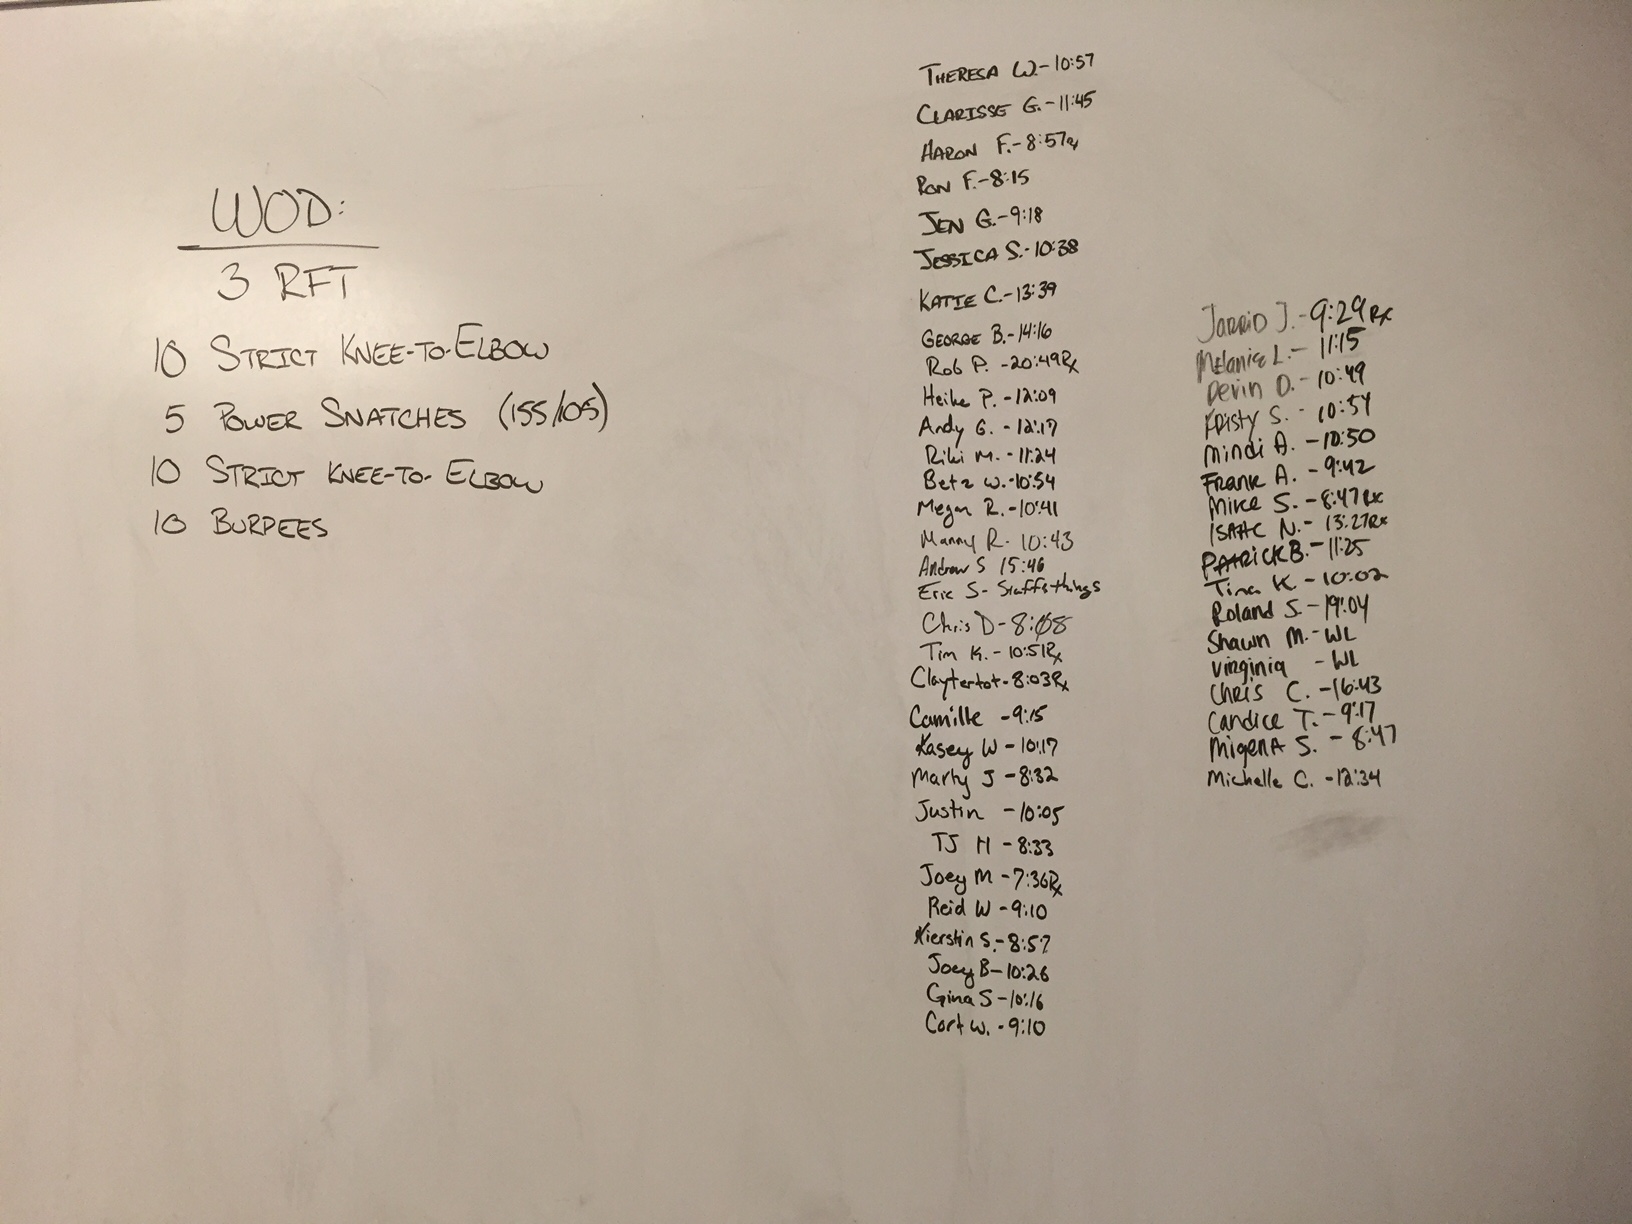 WOD:
3 RFT
10 STRICT KNEE-TO-ELBOW
5 POWER SNATCHES (155/105)
10 STRICT KNEE-TO-ELBOW
10 BURPEES
THERESA W.- 10:57
CLARISSE G. - 11:45
AARON F.- 8:57
RON F.- 8:15
JEN G.- 9:18
JESSICA S.- 10:38
KATIE C.- 13:39
GEORGE B.- 14:16
Rob P. - 20:49Rx
Heike P. - 12:09
Andy G. - 12:17
Riki M. - 11:24
Betz W. - 10:54
Megan R. - 10:41
Manny R. 10:43
Andrew S 15:46
Eric S-
Chris D - 8:08
Tim K. - 10:51Rx
Claytertot - 8:03Rx
Camille - 9:15
Kasey W - 10:17
Marty J - 8:32
Justin - 10:05
TJ H - 8:33
Joey M - 7:36Rx
Reid W - 9:10
Kierstin S. - 8:57
Joey B - 10:26
Gina S - 10:16
Cort W. - 9:10
Jarrid J. - 9:29 Rx
Melanie L. - 11:15
Devin D. - 10:49
Kristy S. - 10:54
Mindi A. - 10:50
Frank A. - 9:42
Mike S. - 8:47 Rx
ISAAC N. - 13:27Rx
PATRICK B. - 11:25
Tina K. - 10:02
Roland S. - 19:04
Shawn M. - WL
Virginia - WL
Chris C. - 16:43
Candice T. - 9:17
Migena S. - 8:47
Michelle C. - 12:34